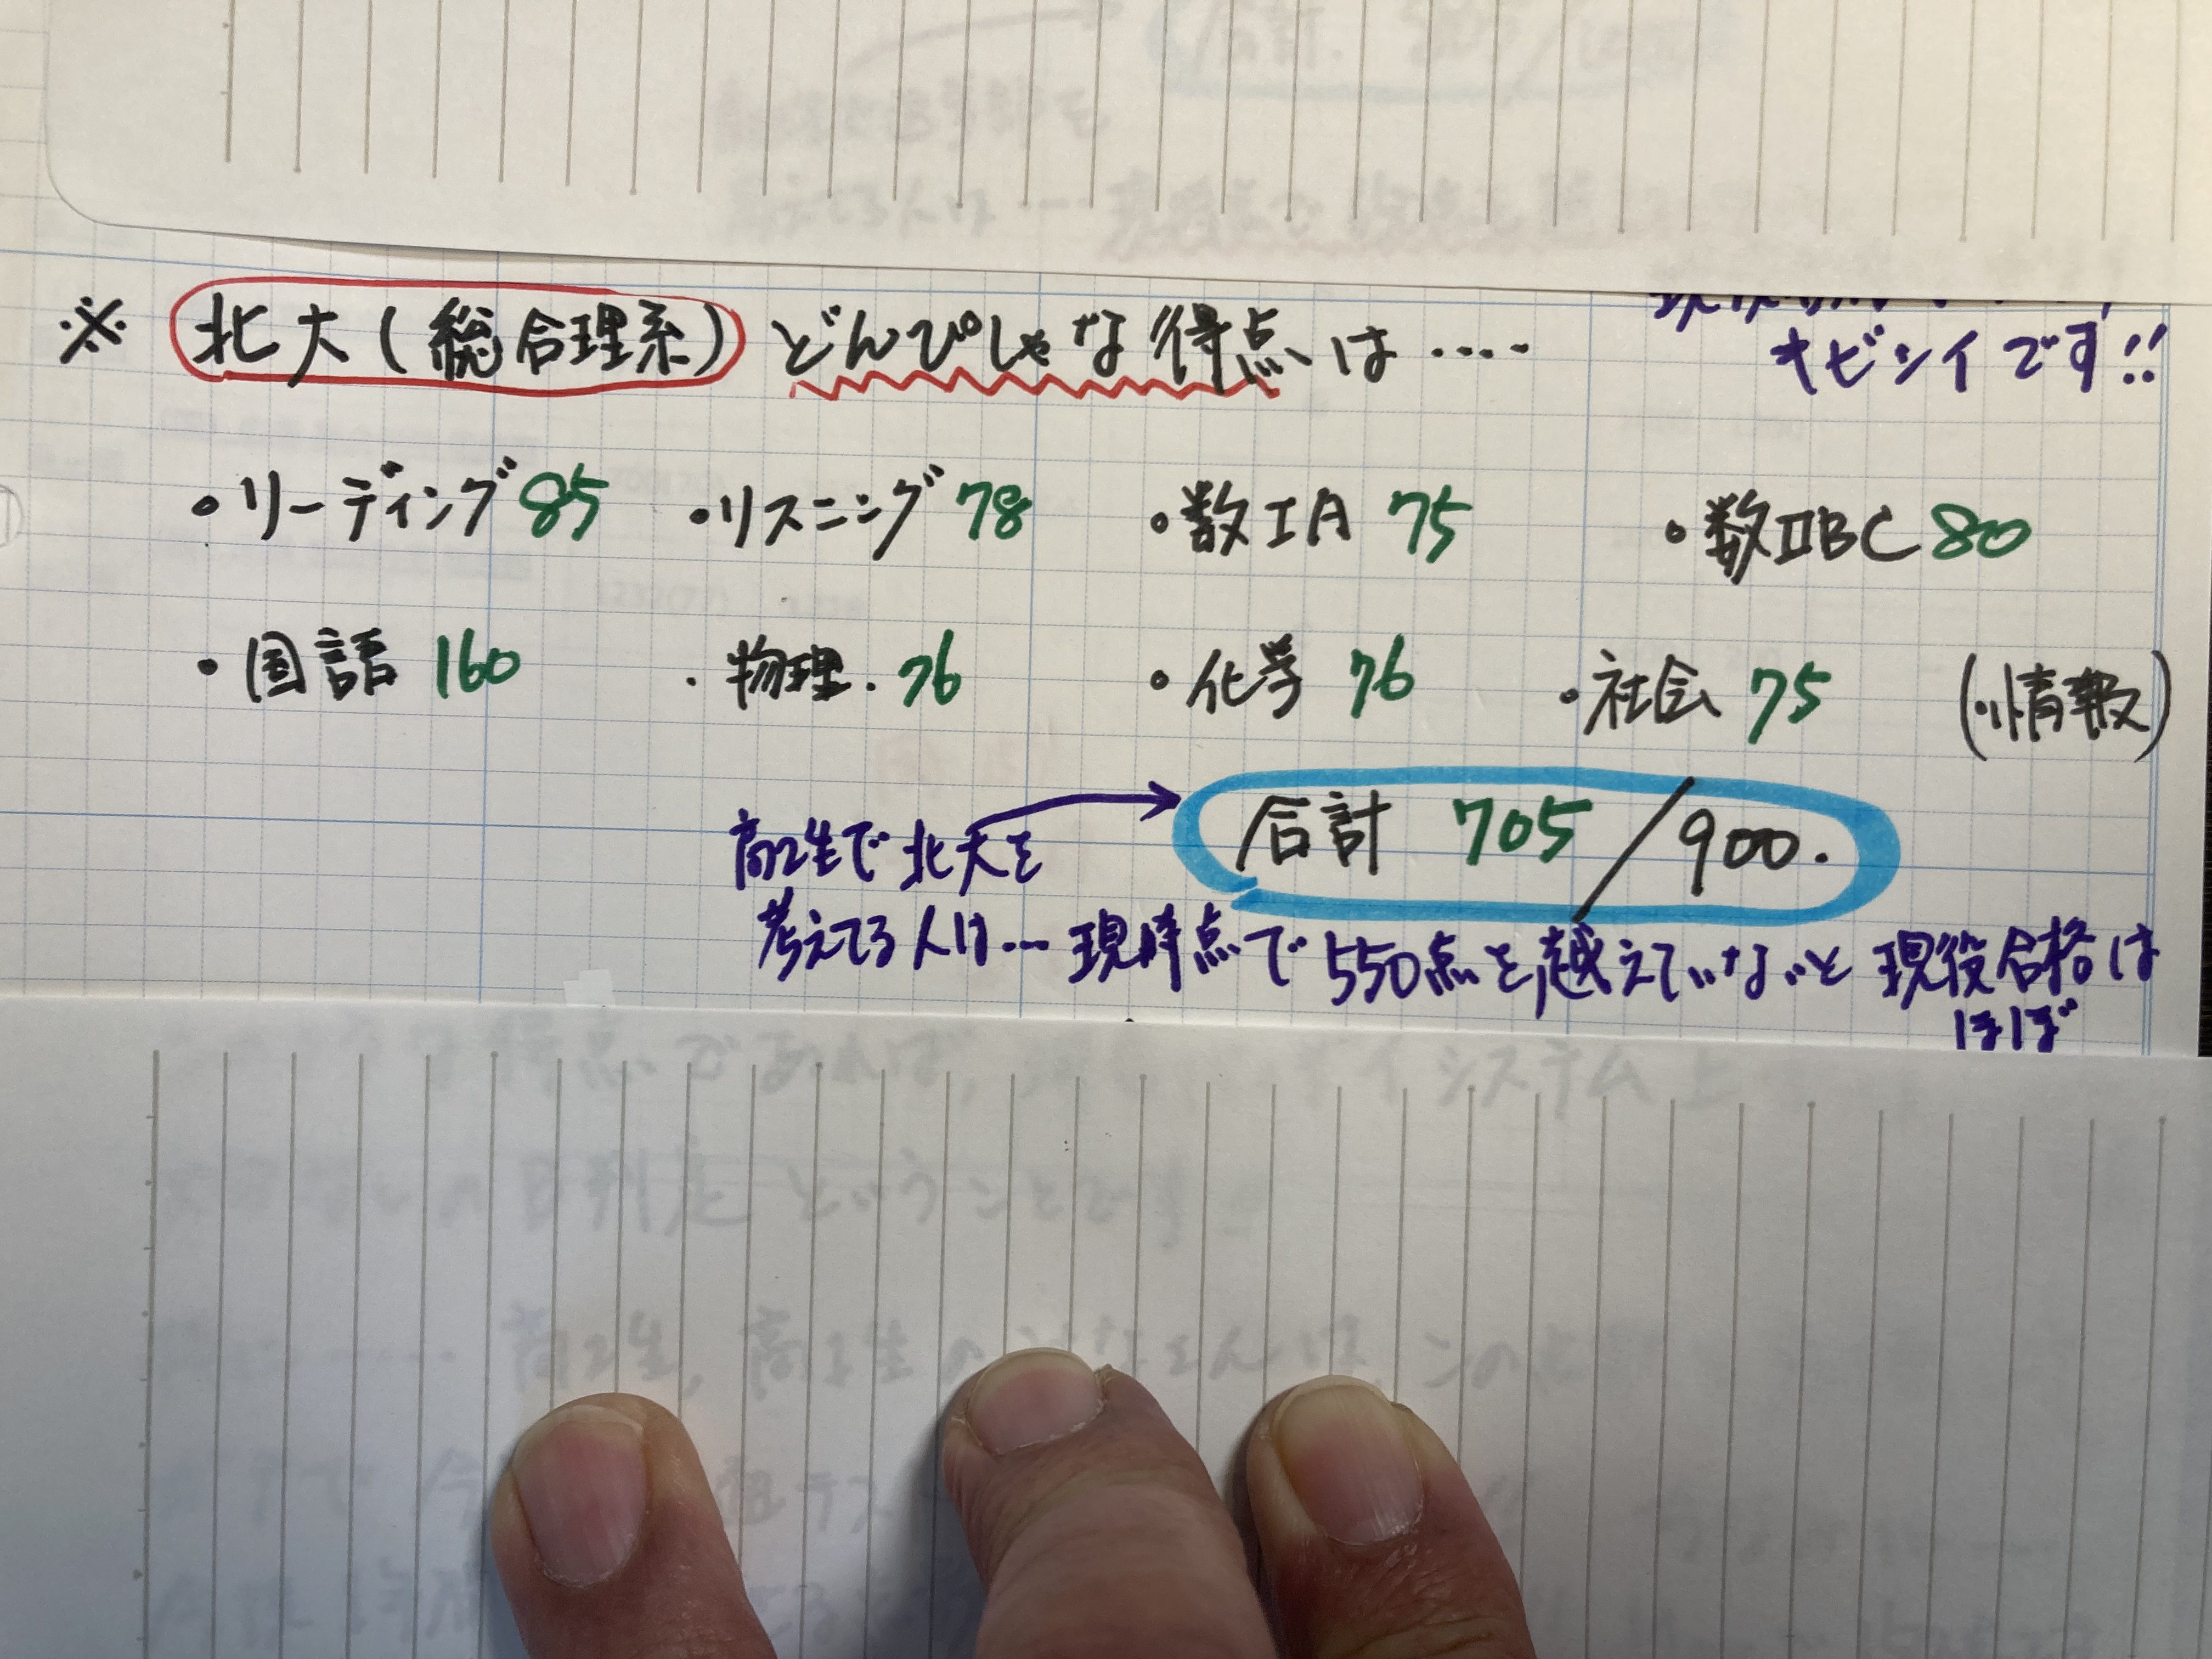 ※ 北大(総合理系) どんぴしゃな得点は‥‥
キビシイです!!
・リーディング 85 ・リスニング 78 ・数ⅠA 75 ・数ⅡBC 80
・国語 160 ・物理. 76 ・化学 76 ・社会 75 (・情報)
合計 705/900.
高2生で北大を
考えてる人は… 現時点で550点を越えていないと現役合格は
ほぼ